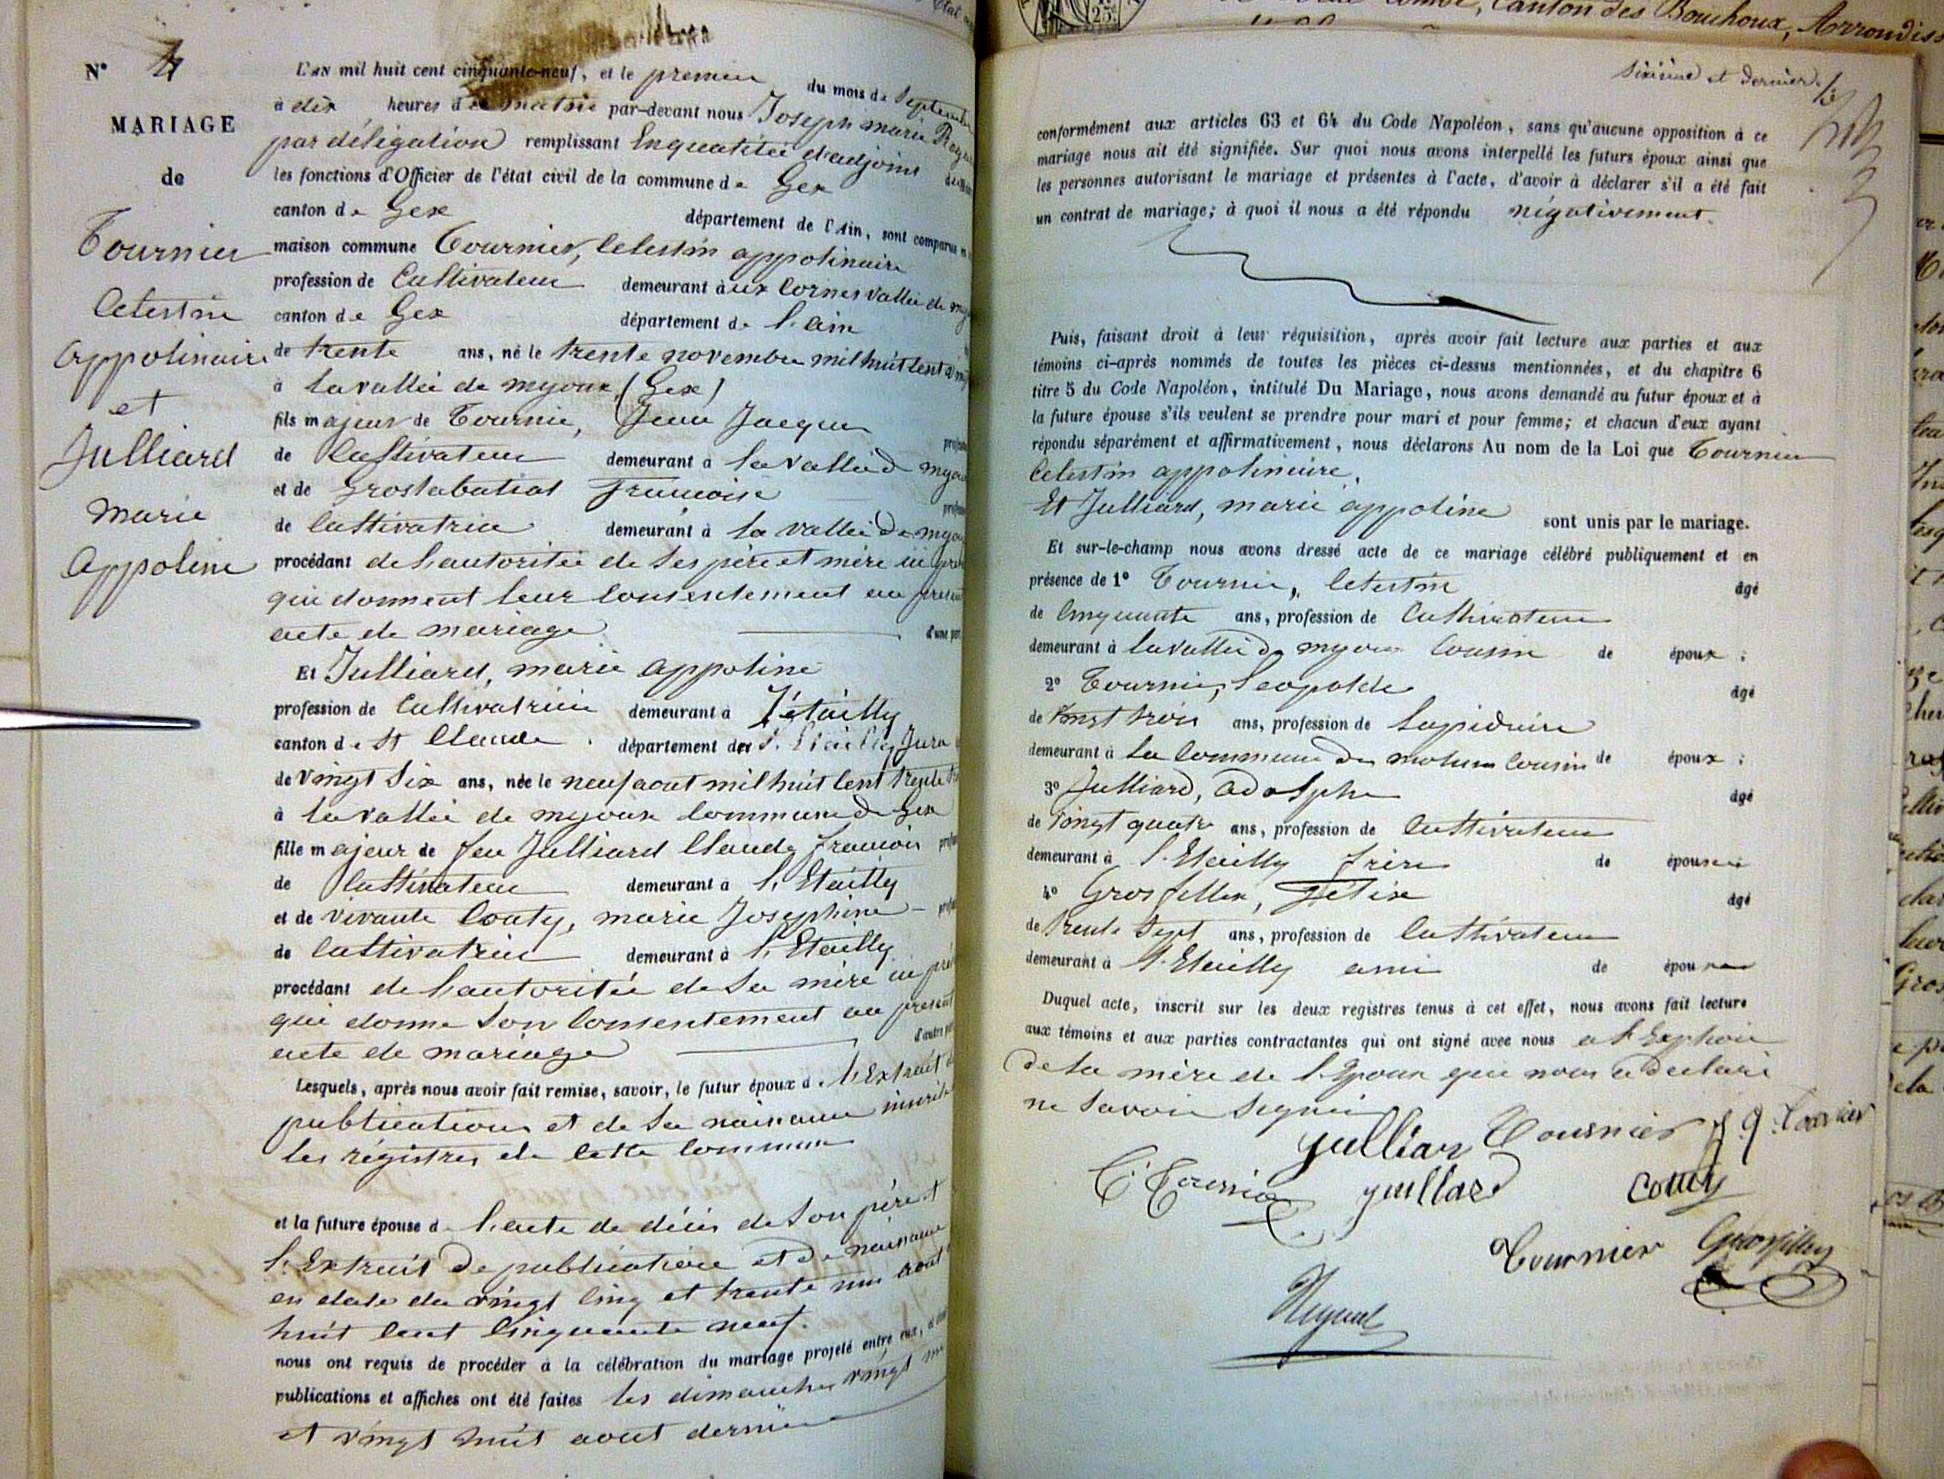 N° 4
MARIAGE
de
Tournier
Celestin
appolinaire
et
Julliard
Marie
Appoline
L'AN mil huit cent cinquante-neuf, et le premier du mois de Septembre
à dix heures du matin par-devant nous Joseph marie
par délégation remplissant Enqualitée d'adjoint
les fonctions d'Officier de l'état civil de la commune de Gex
canton de Gex département de l'Ain, sont comparus en
maison commune Tournier, Celestin appolinaire
profession de Cultivateur demeurant à aux Cornes vallée de
canton de Gex département de l'ain
de trente ans, né le trente novembre mil huit cent
à La vallée de myoux (Gex)
fils majeur de Tournier, Jean Jacques
de Cultivateur demeurant à la vallée de
et de Grostabatiat françoise
de Cultivatrice demeurant à la vallée de
procédant de l'autoritée de ses père et mère ici
qui donnent leur consentement au présent
acte de mariage d'une part
Et Julliard, marie appoline
profession de Cultivatrice demeurant à l'étailly
canton de St Claude département de Jura
de vingt six ans, née le neuf aout mil huit cent trente
à la vallée de myoux commune de Gex
fille majeur de feu Julliard Claude françois
de Cultivateur demeurant à l'Etailly
et de vivante Couty, marie Josephine
de Cultivatrice demeurant à l'Etailly
procédant de l'autoritée de sa mère ici
qui donne son consentement au présent
acte de mariage d'autre part
Lesquels, après nous avoir fait remise, savoir, le futur époux de l'Extrait de
publication et de sa naissance inscrite
les régistres de cette commune
et la future épouse de l'acte de décès de son père et
l'Extrait de publication et de naissance
en date du vingt cinq et trente un aout
huit cent cinquante neuf.
nous ont requis de procéder à la célébration du mariage projeté entre eux,
publications et affiches ont été faites les dimanches vingt un
et vingt huit aout dernier
Sixième et dernier
conformément aux articles 63 et 64 du Code Napoléon, sans qu'aucune opposition à ce
mariage nous ait été signifiée. Sur quoi nous avons interpellé les futurs époux ainsi que
les personnes autorisant le mariage et présentes à l'acte, d'avoir à déclarer s'il a été fait
un contrat de mariage; à quoi il nous a été répondu négativement
Puis, faisant droit à leur réquisition, après avoir fait lecture aux parties et aux
témoins ci-après nommés de toutes les pièces ci-dessus mentionnées, et du chapitre 6
titre 5 du Code Napoléon, intitulé Du Mariage, nous avons demandé au futur époux et à
la future épouse s'ils veulent se prendre pour mari et pour femme; et chacun d'eux ayant
répondu séparément et affirmativement, nous déclarons Au nom de la Loi que Tournier
Celestin appolinaire.
Et Julliard, marie appoline sont unis par le mariage.
Et sur-le-champ nous avons dressé acte de ce mariage célébré publiquement et en
présence de 1° Tournier, Celestin âgé
de Cinquante ans, profession de Cultivateur
demeurant à la vallée de myoux Cousin de époux;
2° Tournier, Leopolde âgé
de vingt trois ans, profession de Lapidaire
demeurant à La Commune de cousin de époux;
3° Julliard, Adolphe âgé
de vingt quatre ans, profession de Cultivateur
demeurant à l'Etailly frère de épouse
4° Grosfillex, Félix âgé
de trente sept ans, profession de Cultivateur
demeurant à l'Etailly ami de époux
Duquel acte, inscrit sur les deux registres tenus à cet effet, nous avons fait lecture
aux témoins et aux parties contractantes qui ont signé avec nous
de la mère de l'Epoux que nous a declaré
ne savoir signer
Julliar Tournier J J Tournier
C. Tournier Juillard Couty
Tournier Grosfillex